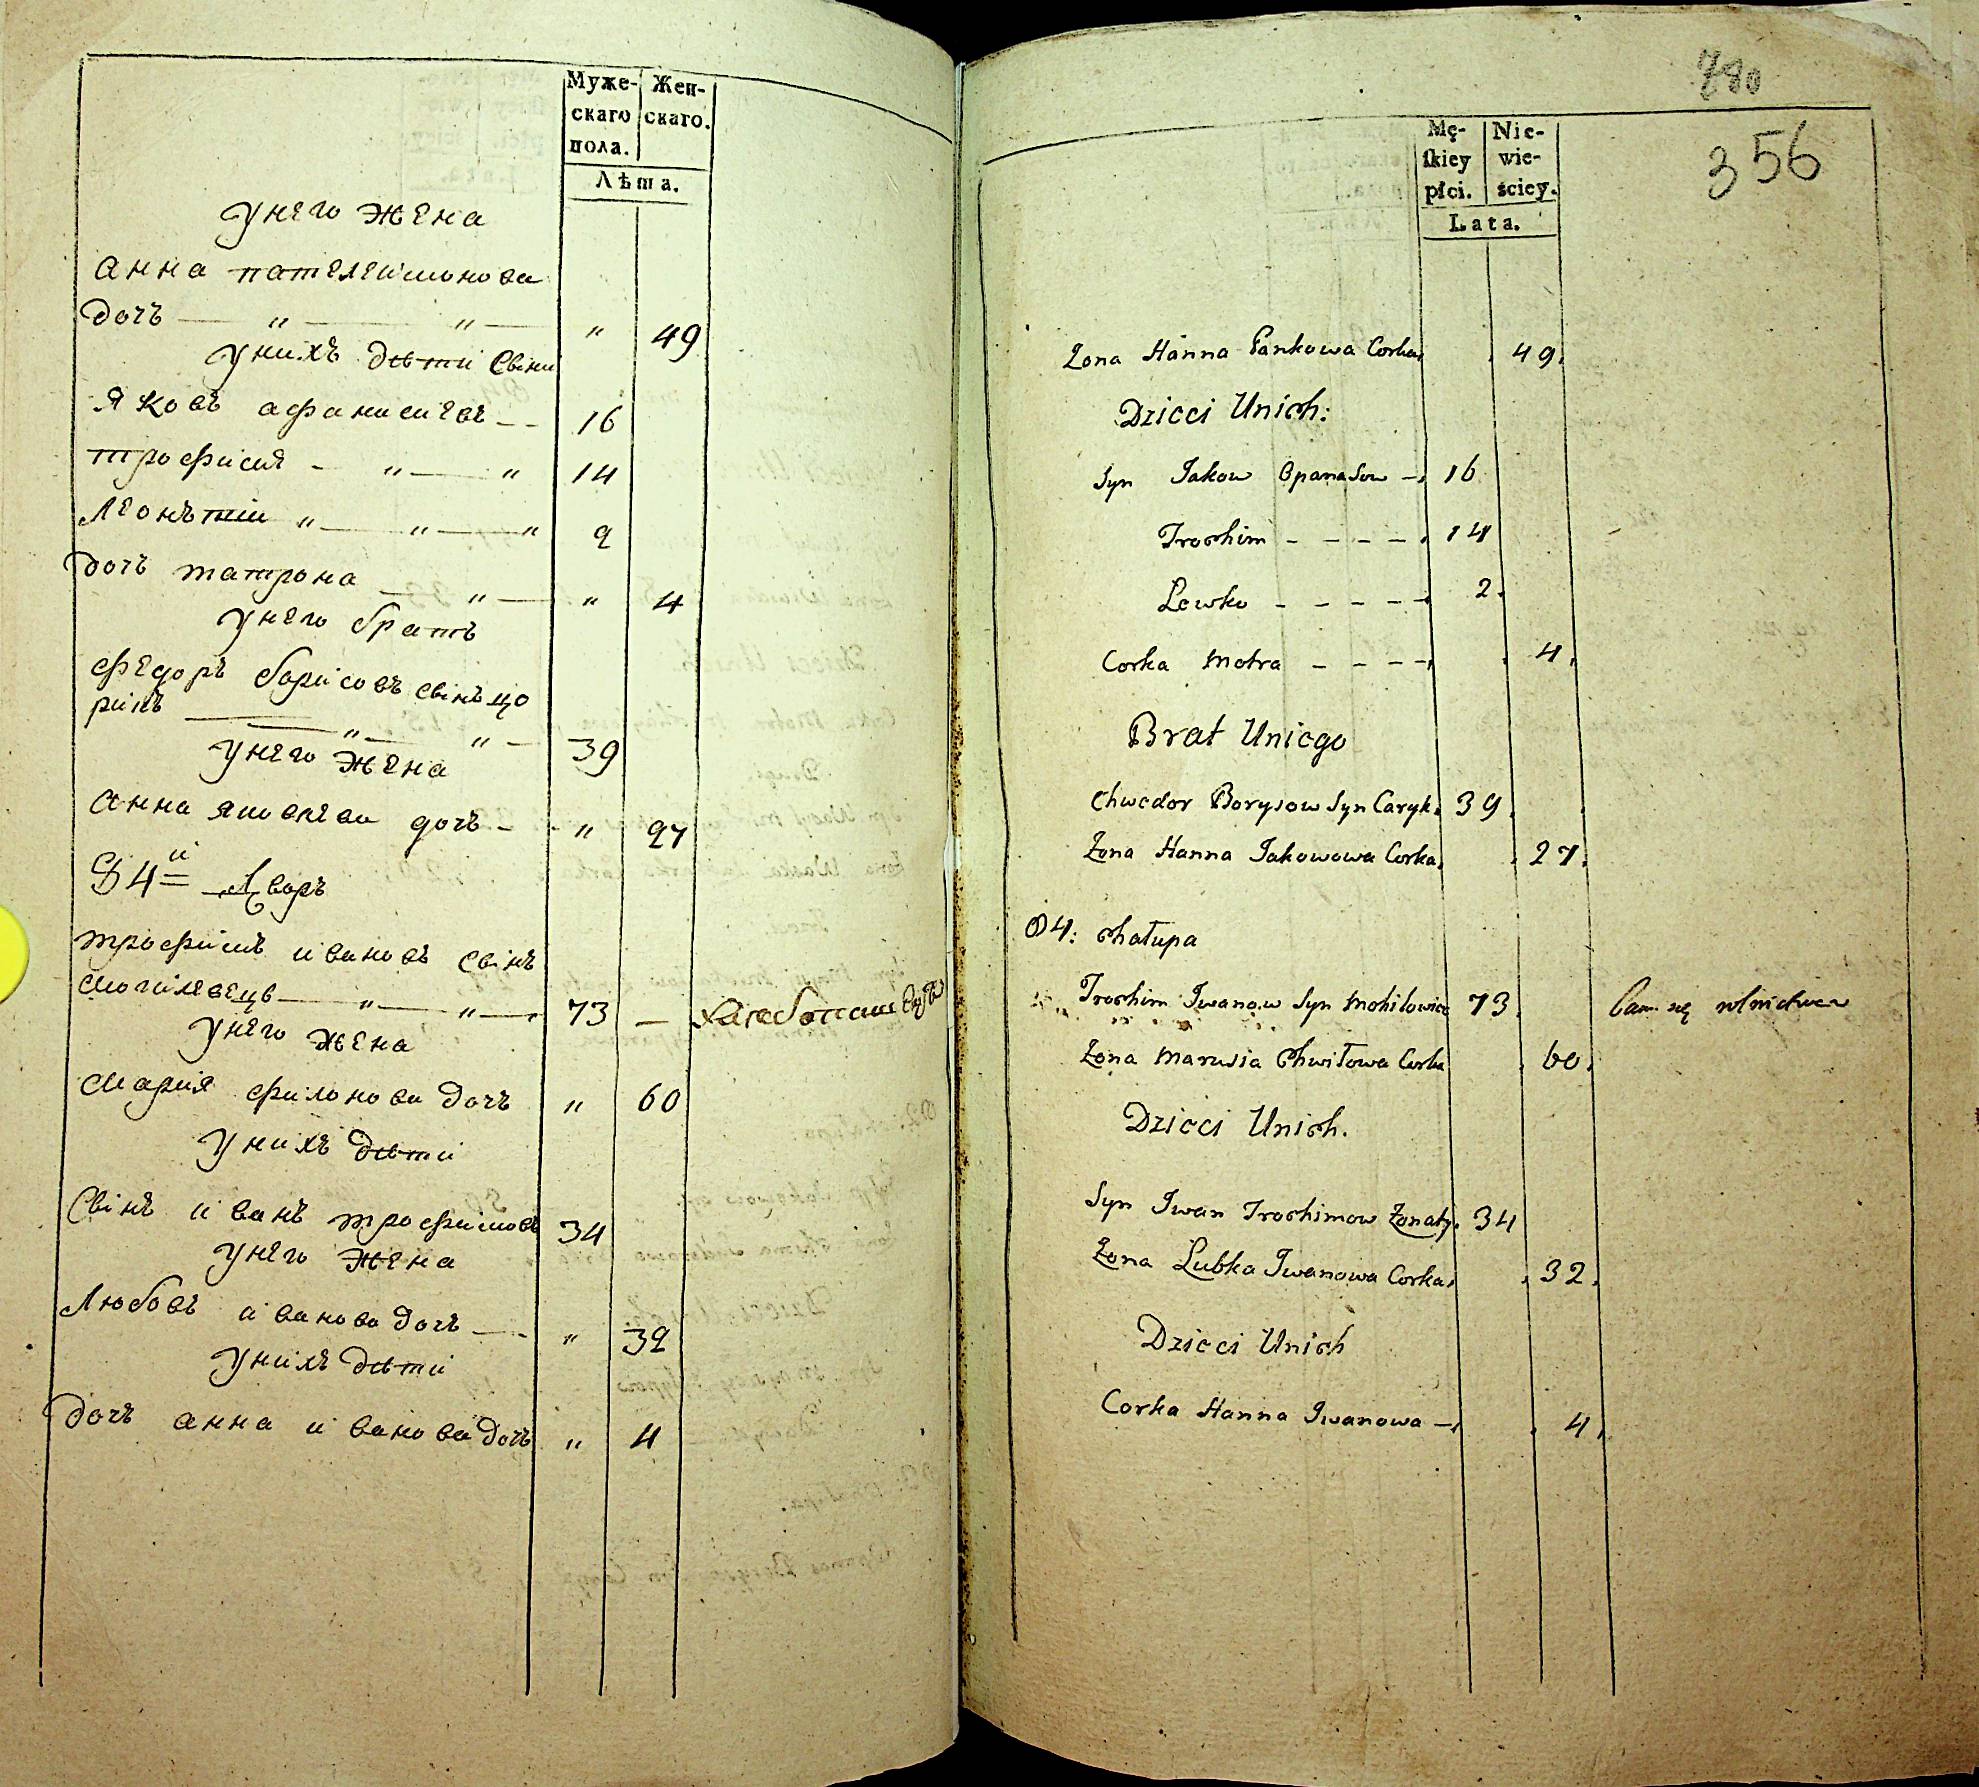 Муже-
скаго
пола.
Жен-
скаго.
Лѣта.
унего жена
анна пателеимонова
дочъ — „ — „ — „ 49
унихъ дѣти Свіни
Яковъ афанасиевъ - - 16
трофисія - „ — „ 14
Леонътіи „ — „ — „ 2
дочъ матрона — „ — „ 4
унего братъ
Федоръ борисовъ свінъ цо
рикъ — „ — „ — 39
унего жена
анна яковлева дочъ - - „ 27
84й Дворъ
трофимъ ивановъ свінъ
могилевецъ — „ — „ — 73 —
унего жена
мария филонова дочъ „ 60
унихъ дѣти
Свінъ иванъ трофимовъ 34
унего жена
Любовъ иванова дочъ — „ 32
унихъ дѣти
дочъ анна иванова дочъ „ 4
780
356
Mę-
skiey
płci.
Nie-
wie-
ściey.
Lata.
Zona Hanna Pankowa Corka 49.
Dzieci Unich:
Syn Jakow Opanasow — 16
Trochim - - - - 14
Lewko - - - - - 2.
Corka Motra - - - - 4.
Brat Uniego
Chwedor Borysow Syn Caryk. 39.
Zona Hanna Jakowowa Corka. 27.
84: chałupa
Trochim Iwanow Syn Mohilowiec 73. bawi się rolnictwem
Zona Marusia Chwiłowa Corka 60.
Dzieci Unich.
Syn Iwan Trochimow Zonaty. 34
Zona Lubka Iwanowa Corka. 32.
Dzieci Unich
Corka Hanna Iwanowa — 4.